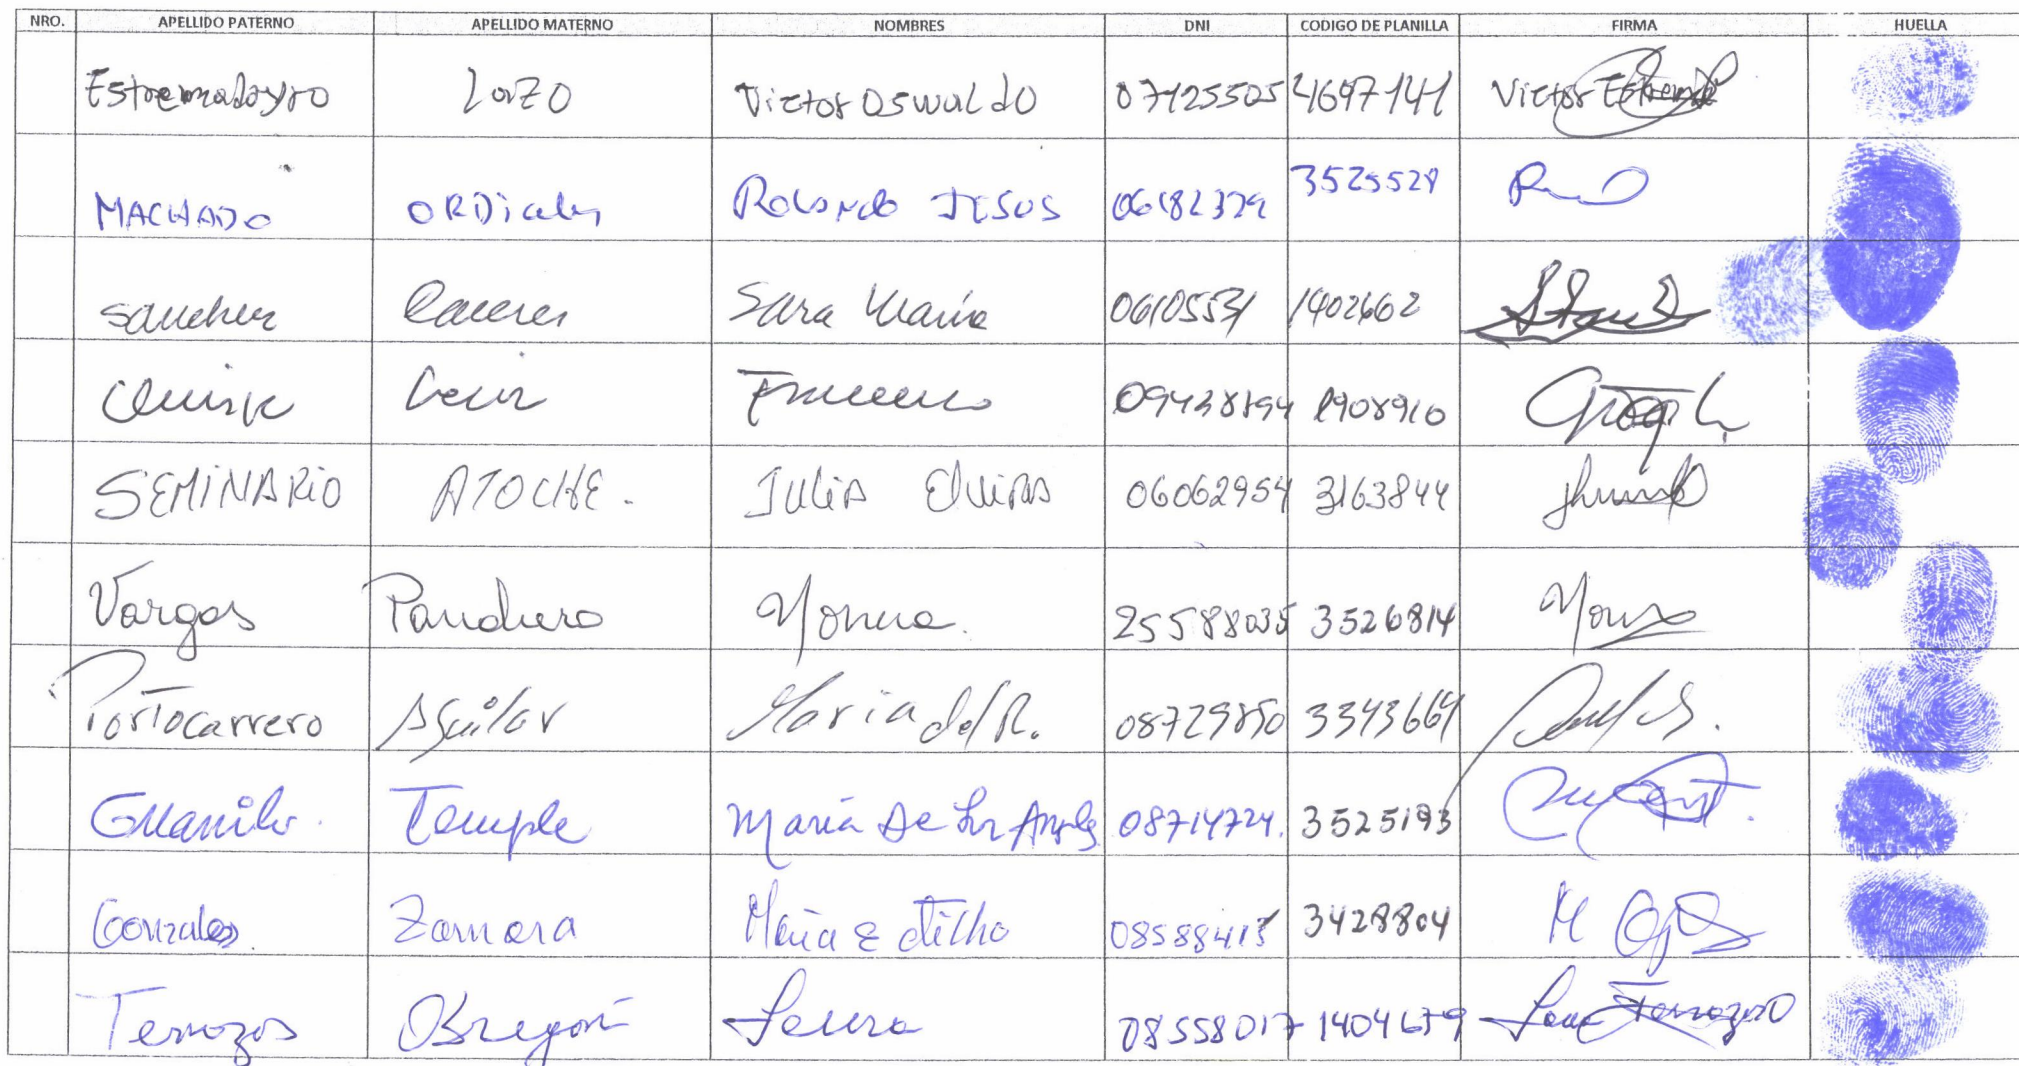 NRO. APELLIDO PATERNO APELLIDO MATERNO NOMBRES DNI CODIGO DE PLANILLA FIRMA HUELLA
Estremadoyro Lozo Victor Oswaldo 07125505 4697141 Victor
MACHADO ORDiales Rolando JESUS 06182379 3525528
Sanchez Caceres Sara Maria 1402662
Quispe Francisco 09428894 1908910
SEMINARIO ATOCHE. Julia Elvira 06062954 3163844
Vargas Panduro 25588035 3526814
Portocarrero Aguilar Maria del R. 08729850 3343664
Guanilo. Temple Maria De Los Angeles 08714724. 3525193
Gonzales. Zamora Maria Etilho 08588413 3428804
Terrazos Obregón Laura 08558017 1404679 Laura Terrazos